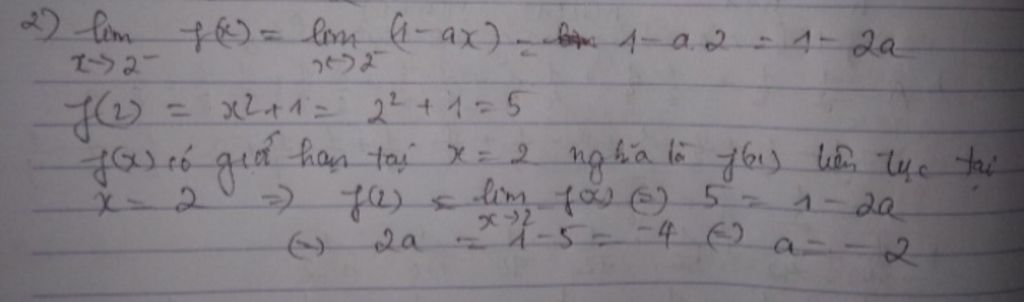 2) lim f(x) = lim (1-ax) = 1-a.2 = 1-2a
x→2⁻ x→2⁻
f(2) = x²+1 = 2²+1 = 5
f(x) có giới hạn tại x = 2 nghĩa là f(x) liên tục tại
x = 2 ⇒ f(2) = lim f(x) ⇔ 5 = 1-2a
x→2
⇔ 2a = 1-5 = -4 ⇔ a = -2